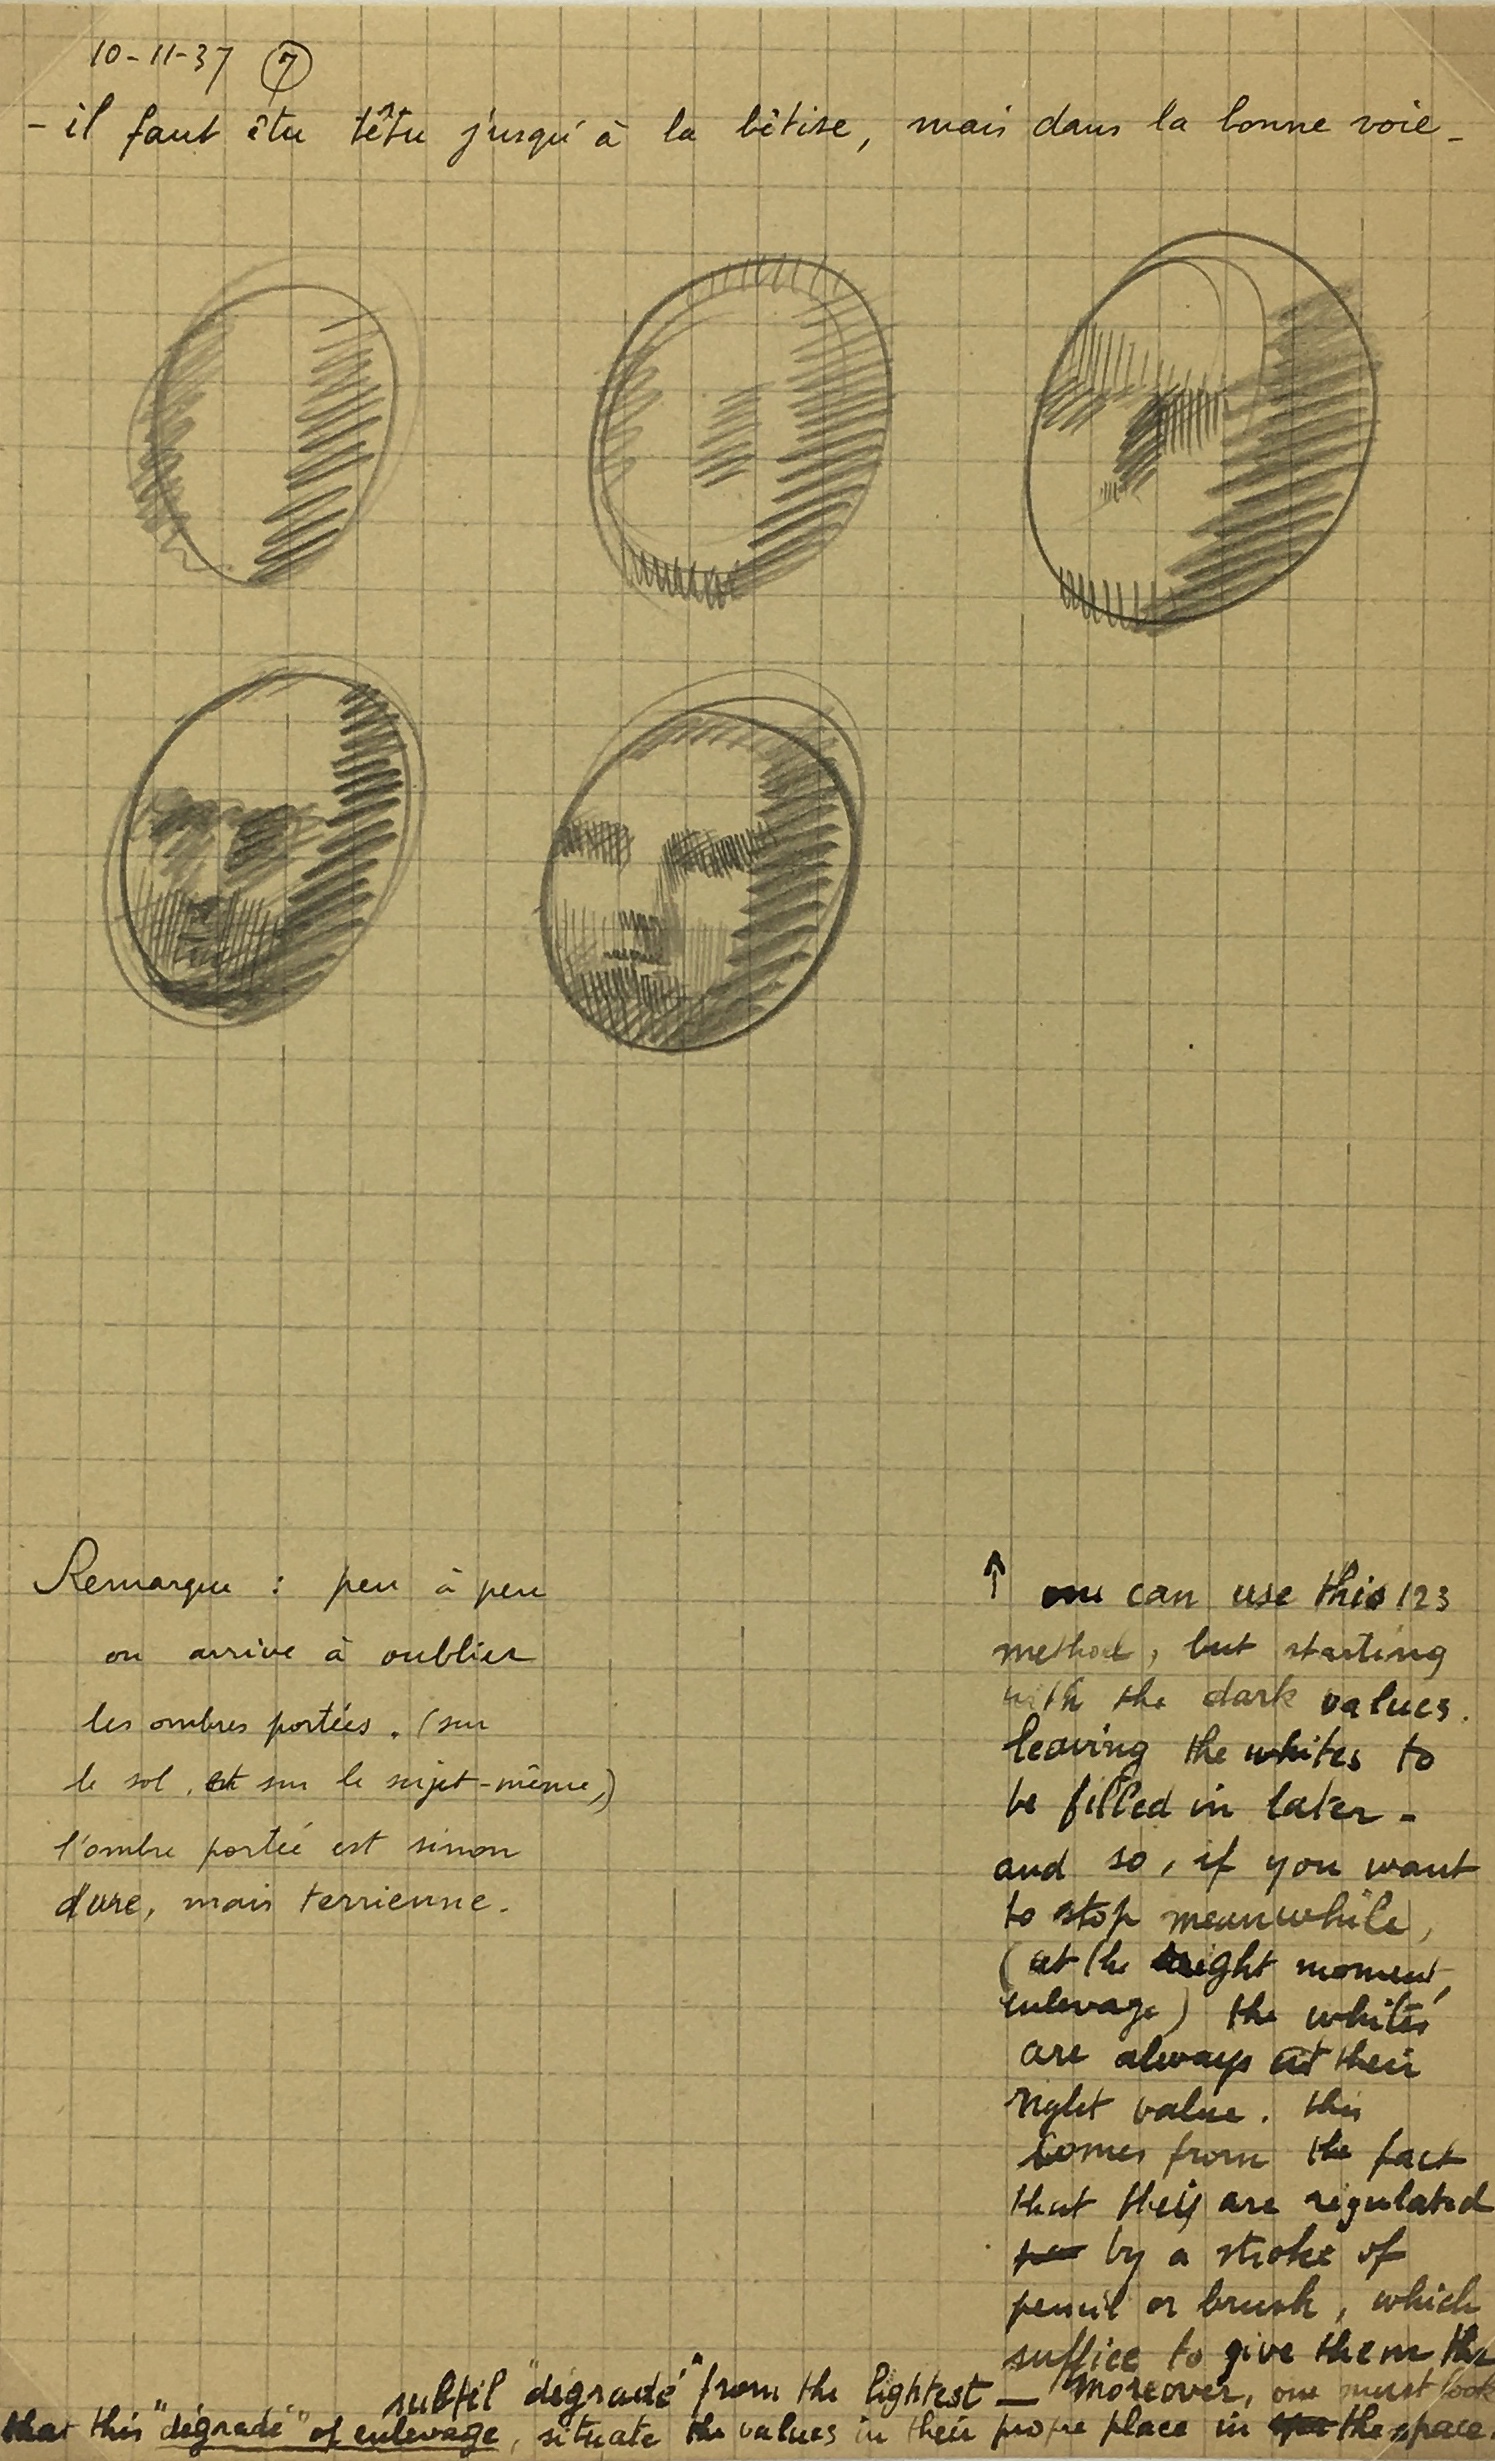 10-11-37 ⑦
- il faut être têtu jusqu'à la bêtise, mais dans la bonne voie -
Remarque : peu à peu
on arrive à oublier
les ombres portées. (sur
le sol, et sur le sujet-même,)
l'ombre portée est sinon
dure, mais terrienne.
↑ one can use this 123
method, but starting
with the dark values.
leaving the whites to
be filled in later -
and so, if you want
to stop meanwhile,
(at the right moment,
enlevage) the whites
are always at their
right value. this
comes from the fact
that they are regulated
by a stroke of
pencil or brush, which
suffice to give them the
subtil "dégradé" from the lightest — Moreover, one must look
that this "dégradé" of enlevage, situate the values in their prope place in the space.